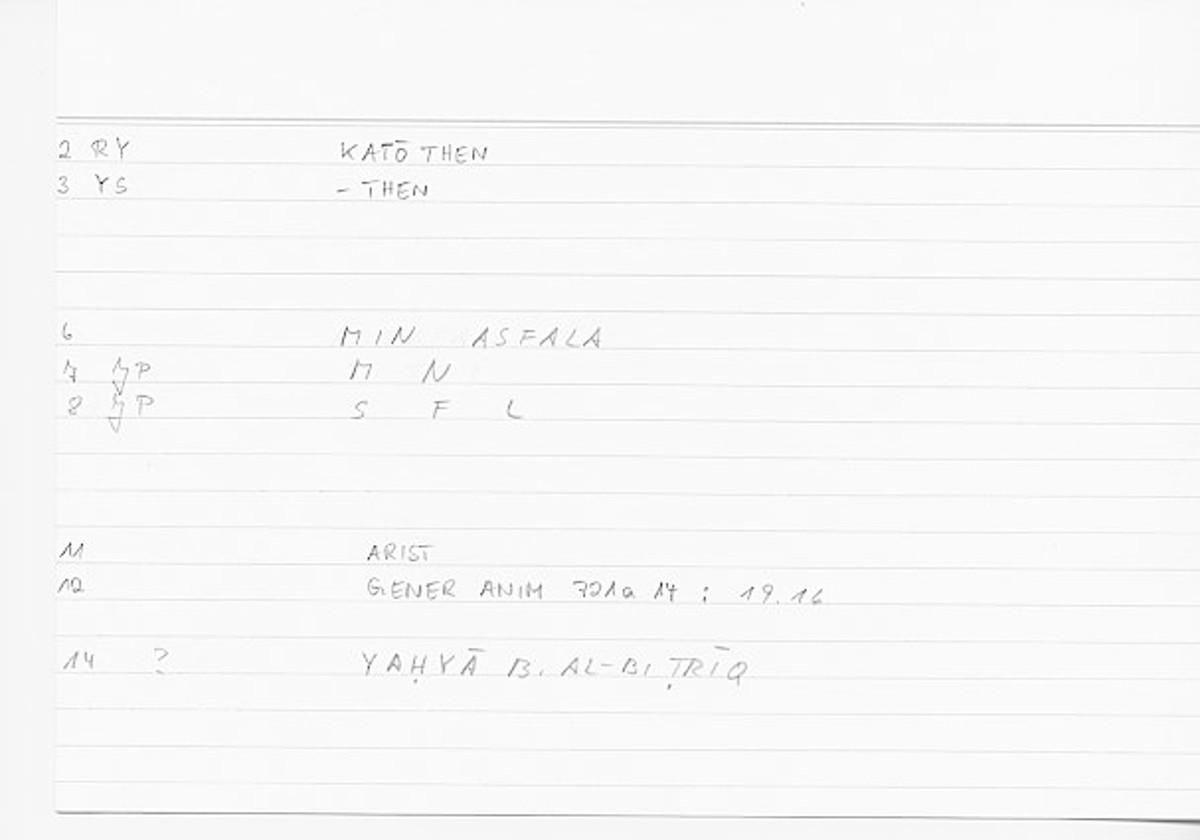 2 RY KATŌ THEN
3 YS - THEN
6 MIN ASFALA
7 P M N
8 P S F L
11 ARIST
12 GENER ANIM 721a 17 : 19.16
14 ? YAḤYĀ B. AL-BIṬRĪQ